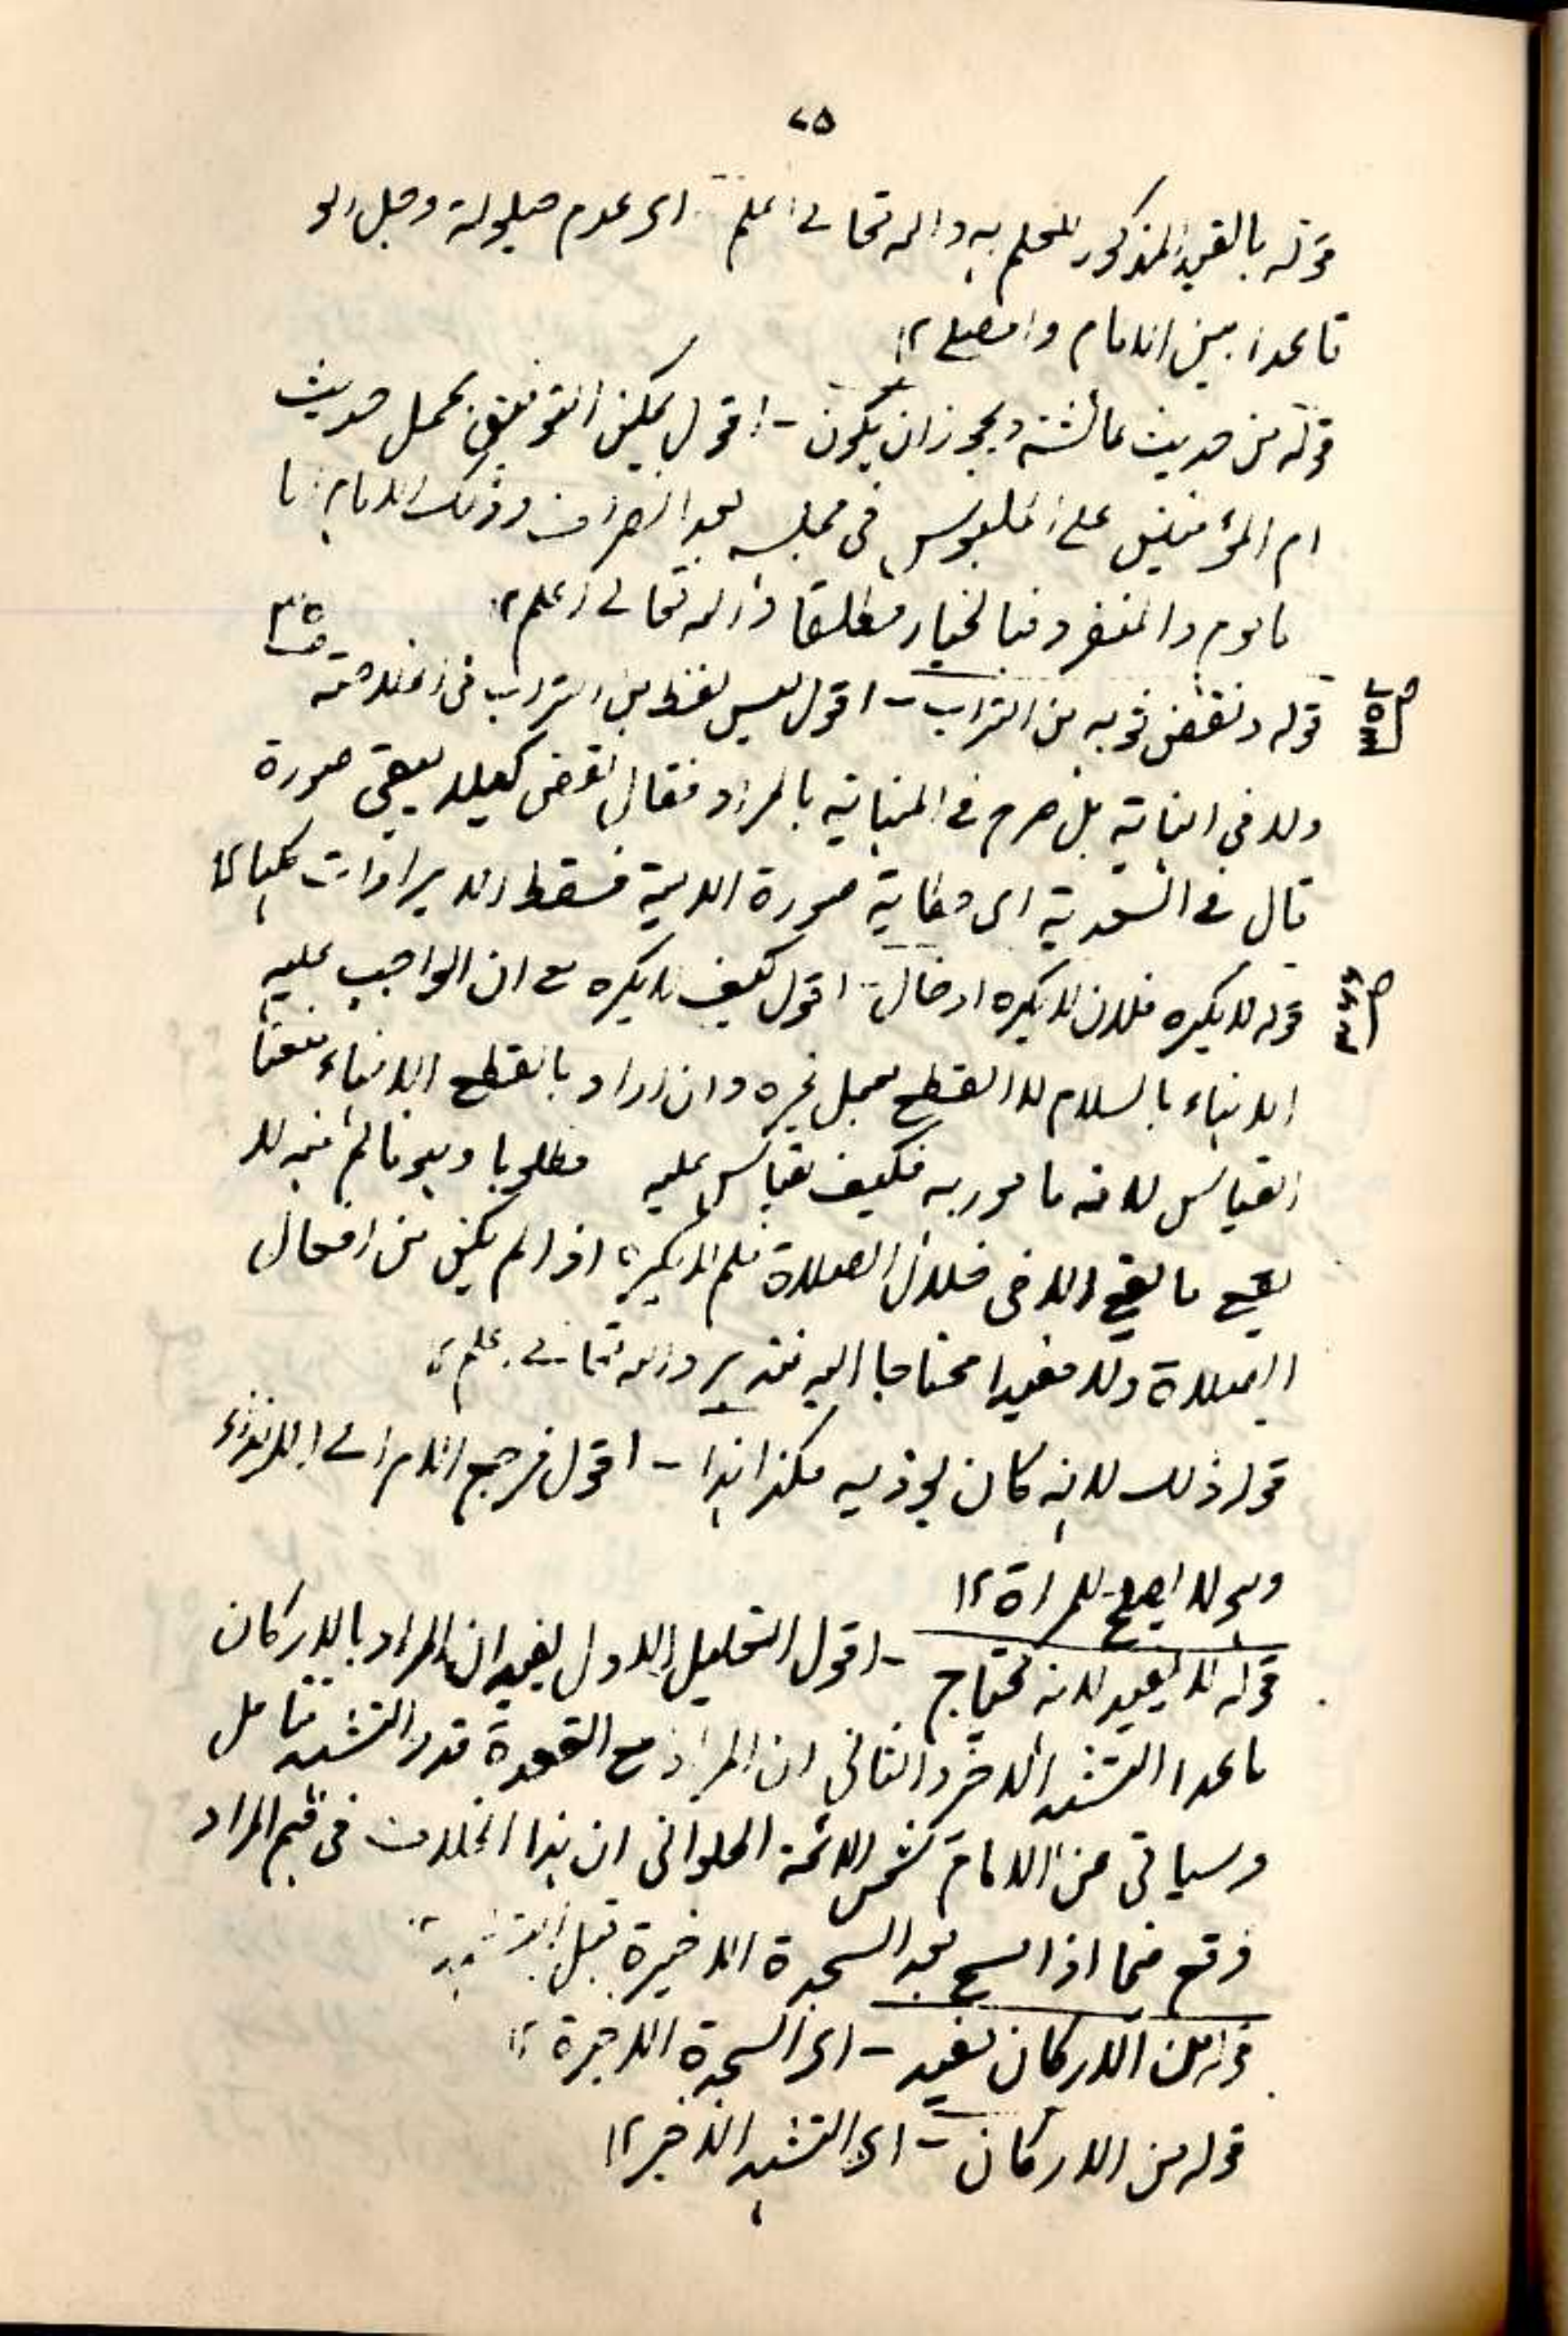 ٧٥
قوله بالقيد المذكور للعلم به والله تعالى اعلم اى عدم حيلولة رجل ولو
قاعدا بين الامام والمصلى ١٢
قوله من حديث عائشة ويجوز ان يكون - اقول يمكن التوفيق بحمل حديث
ام المؤمنين على الجلوس فى مجلسه بعد انصراف وذلك الامام اما
ماموم والمنفرد فبالخيار مطلقا والله تعالى اعلم ١٢
قوله ونفض ثوبه من التراب - اقول ليس لفظ من التراب فى الخلاصة
ولا فى النهاية بل صرح فى النهاية بالمراد فقال نفض كيلا يبقى صورة
قال فى السعدية اى حكاية صورة الالية فسقط الايرادات كلها ١٢
قوله لا يكره فلان لا يكره ادخال - اقول كيف لا يكره مع ان الواجب عليه
الانهاء بالسلام لا القطع بعمل غيره وان اراد بالقطع الانهاء منعنا
القياس لانه مامور به فكيف يقاس عليه مطلوبا وبه فالم فيه لا
يقع ما يقع الا فى خلال الصلاة فلم لا يكره اذا لم يكن من افعال
الصلاة ولا مفيدا محتاجا اليه فتدبر والله تعالى اعلم ١٢
قوله ذلك لانه كان يوذيه هكذا هذا - اقول فرجع الامر الى الايذاء
وهو لا يصلح للمرأة ١٢
قوله لا يعيد لانه يحتاج - اقول التعليل الاول يفيد ان المراد بالاركان
ما عدا التشهد الاخر والثانى ان المراد مع القعدة قدر التشهد تامل
وسياتى عن الامام شمس الائمة الحلوانى ان هذا الخلاف فى فهم المراد
وقع فيما اذا بعد السجدة الاخيرة قبل التشهد ١٢
قوله من الاركان يعيد - اى السجدة الاخيرة ١٢
قوله من الاركان - اى التشهد الاخير ١٢